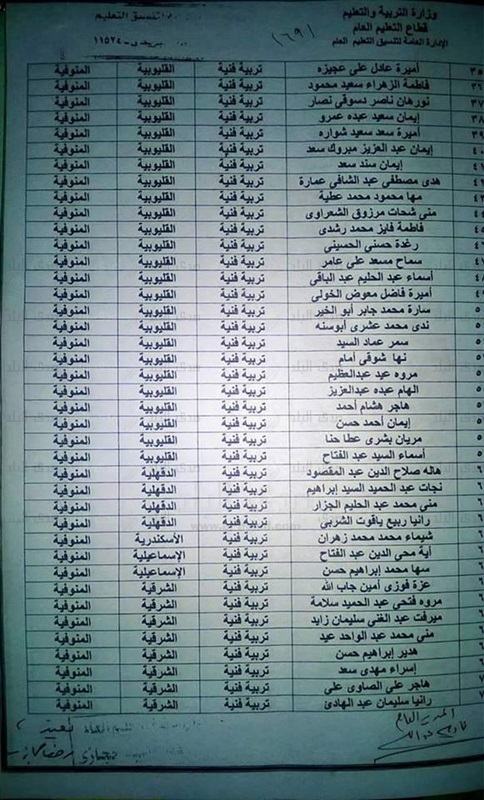 وزارة التربية والتعليم
قطاع التعليم العام
الإدارة العامة لتنسيق التعليم العام
تنسيق التعليم
١١٥٢٤
(٦٩)
٣٥ أميرة عادل على عجيزه تربية فنية القليوبية المنوفية
٣٦ فاطمة الزهراء سعيد محمود تربية فنية القليوبية المنوفية
٣٧ نورهان ناصر دسوقى نصار تربية فنية القليوبية المنوفية
٣٨ إيمان سعيد عبده عمرو تربية فنية القليوبية المنوفية
٣٩ أميرة سعد سعيد شواره تربية فنية القليوبية المنوفية
٤٠ إيمان عبد العزيز مبروك سعد تربية فنية القليوبية المنوفية
٤١ إيمان سند سعد تربية فنية القليوبية المنوفية
٤٢ هدى مصطفى عبد الشافى عمارة تربية فنية القليوبية المنوفية
٤٣ مها محمود محمد عطية تربية فنية القليوبية المنوفية
٤٤ منى شحات مرزوق الشعراوى تربية فنية القليوبية المنوفية
٤٥ فاطمة فايز محمد رشدى تربية فنية القليوبية المنوفية
٤٦ رغدة حسنى الحسينى تربية فنية القليوبية المنوفية
٤٧ سماح مسعد على عامر تربية فنية القليوبية المنوفية
٤٨ أسماء عبد الحليم عبد الباقى تربية فنية القليوبية المنوفية
٤٩ أميرة فاضل معوض الخولى تربية فنية القليوبية المنوفية
٥ سارة محمد جابر أبو الخير تربية فنية القليوبية المنوفية
٥ ندى محمد عشرى أبوسنه تربية فنية القليوبية المنوفية
٥ سمر عماد السيد تربية فنية القليوبية المنوفية
٥ نها شوقى أمام تربية فنية القليوبية المنوفية
٥ مروه عيد عبدالعظيم تربية فنية القليوبية المنوفية
٥ الهام عبده عبدالعزيز تربية فنية القليوبية المنوفية
٥ هاجر هشام أحمد تربية فنية القليوبية المنوفية
٥ إيمان أحمد حسن تربية فنية القليوبية المنوفية
٥ مريان بشرى عطا حنا تربية فنية القليوبية المنوفية
٥ أسماء السيد عبد الفتاح تربية فنية القليوبية المنوفية
٦ هاله صلاح الدين عبد المقصود تربية فنية الدقهلية المنوفية
٦ نجات عبد الحميد السيد إبراهيم تربية فنية الدقهلية المنوفية
٦ منى محمد عبد الحليم الجزار تربية فنية الدقهلية المنوفية
٦ رانيا ربيع ياقوت الشربى تربية فنية الدقهلية المنوفية
٦ شيماء محمد محمد زهران تربية فنية الأسكندرية المنوفية
٦ آية محى الدين عبد الفتاح تربية فنية الإسماعيلية المنوفية
٦ سها محمد إبراهيم حسن تربية فنية الإسماعيلية المنوفية
٦ عزة فوزى أمين جاب الله تربية فنية الشرقية المنوفية
٦ مروه فتحى عبد الحميد سلامة تربية فنية الشرقية المنوفية
٦ ميرفت عبد الغنى سليمان زايد تربية فنية الشرقية المنوفية
٧ منى محمد عبد الواحد عيد تربية فنية الشرقية المنوفية
٧ هدير إبراهيم حسن تربية فنية الشرقية المنوفية
٧ إسراء مهدى سعد تربية فنية الشرقية المنوفية
٧ هاجر على الصاوى على تربية فنية الشرقية المنوفية
٧ رانيا سليمان عبد الهادى تربية فنية الشرقية المنوفية
المدير العام